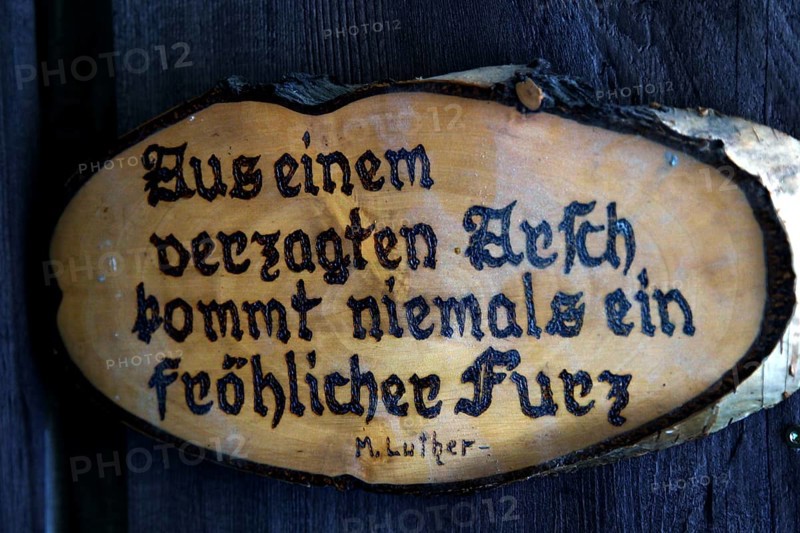 Aus einem
verzagten Arsch
kommt niemals ein
fröhlicher Furz
M. Luther-
PHOTO12